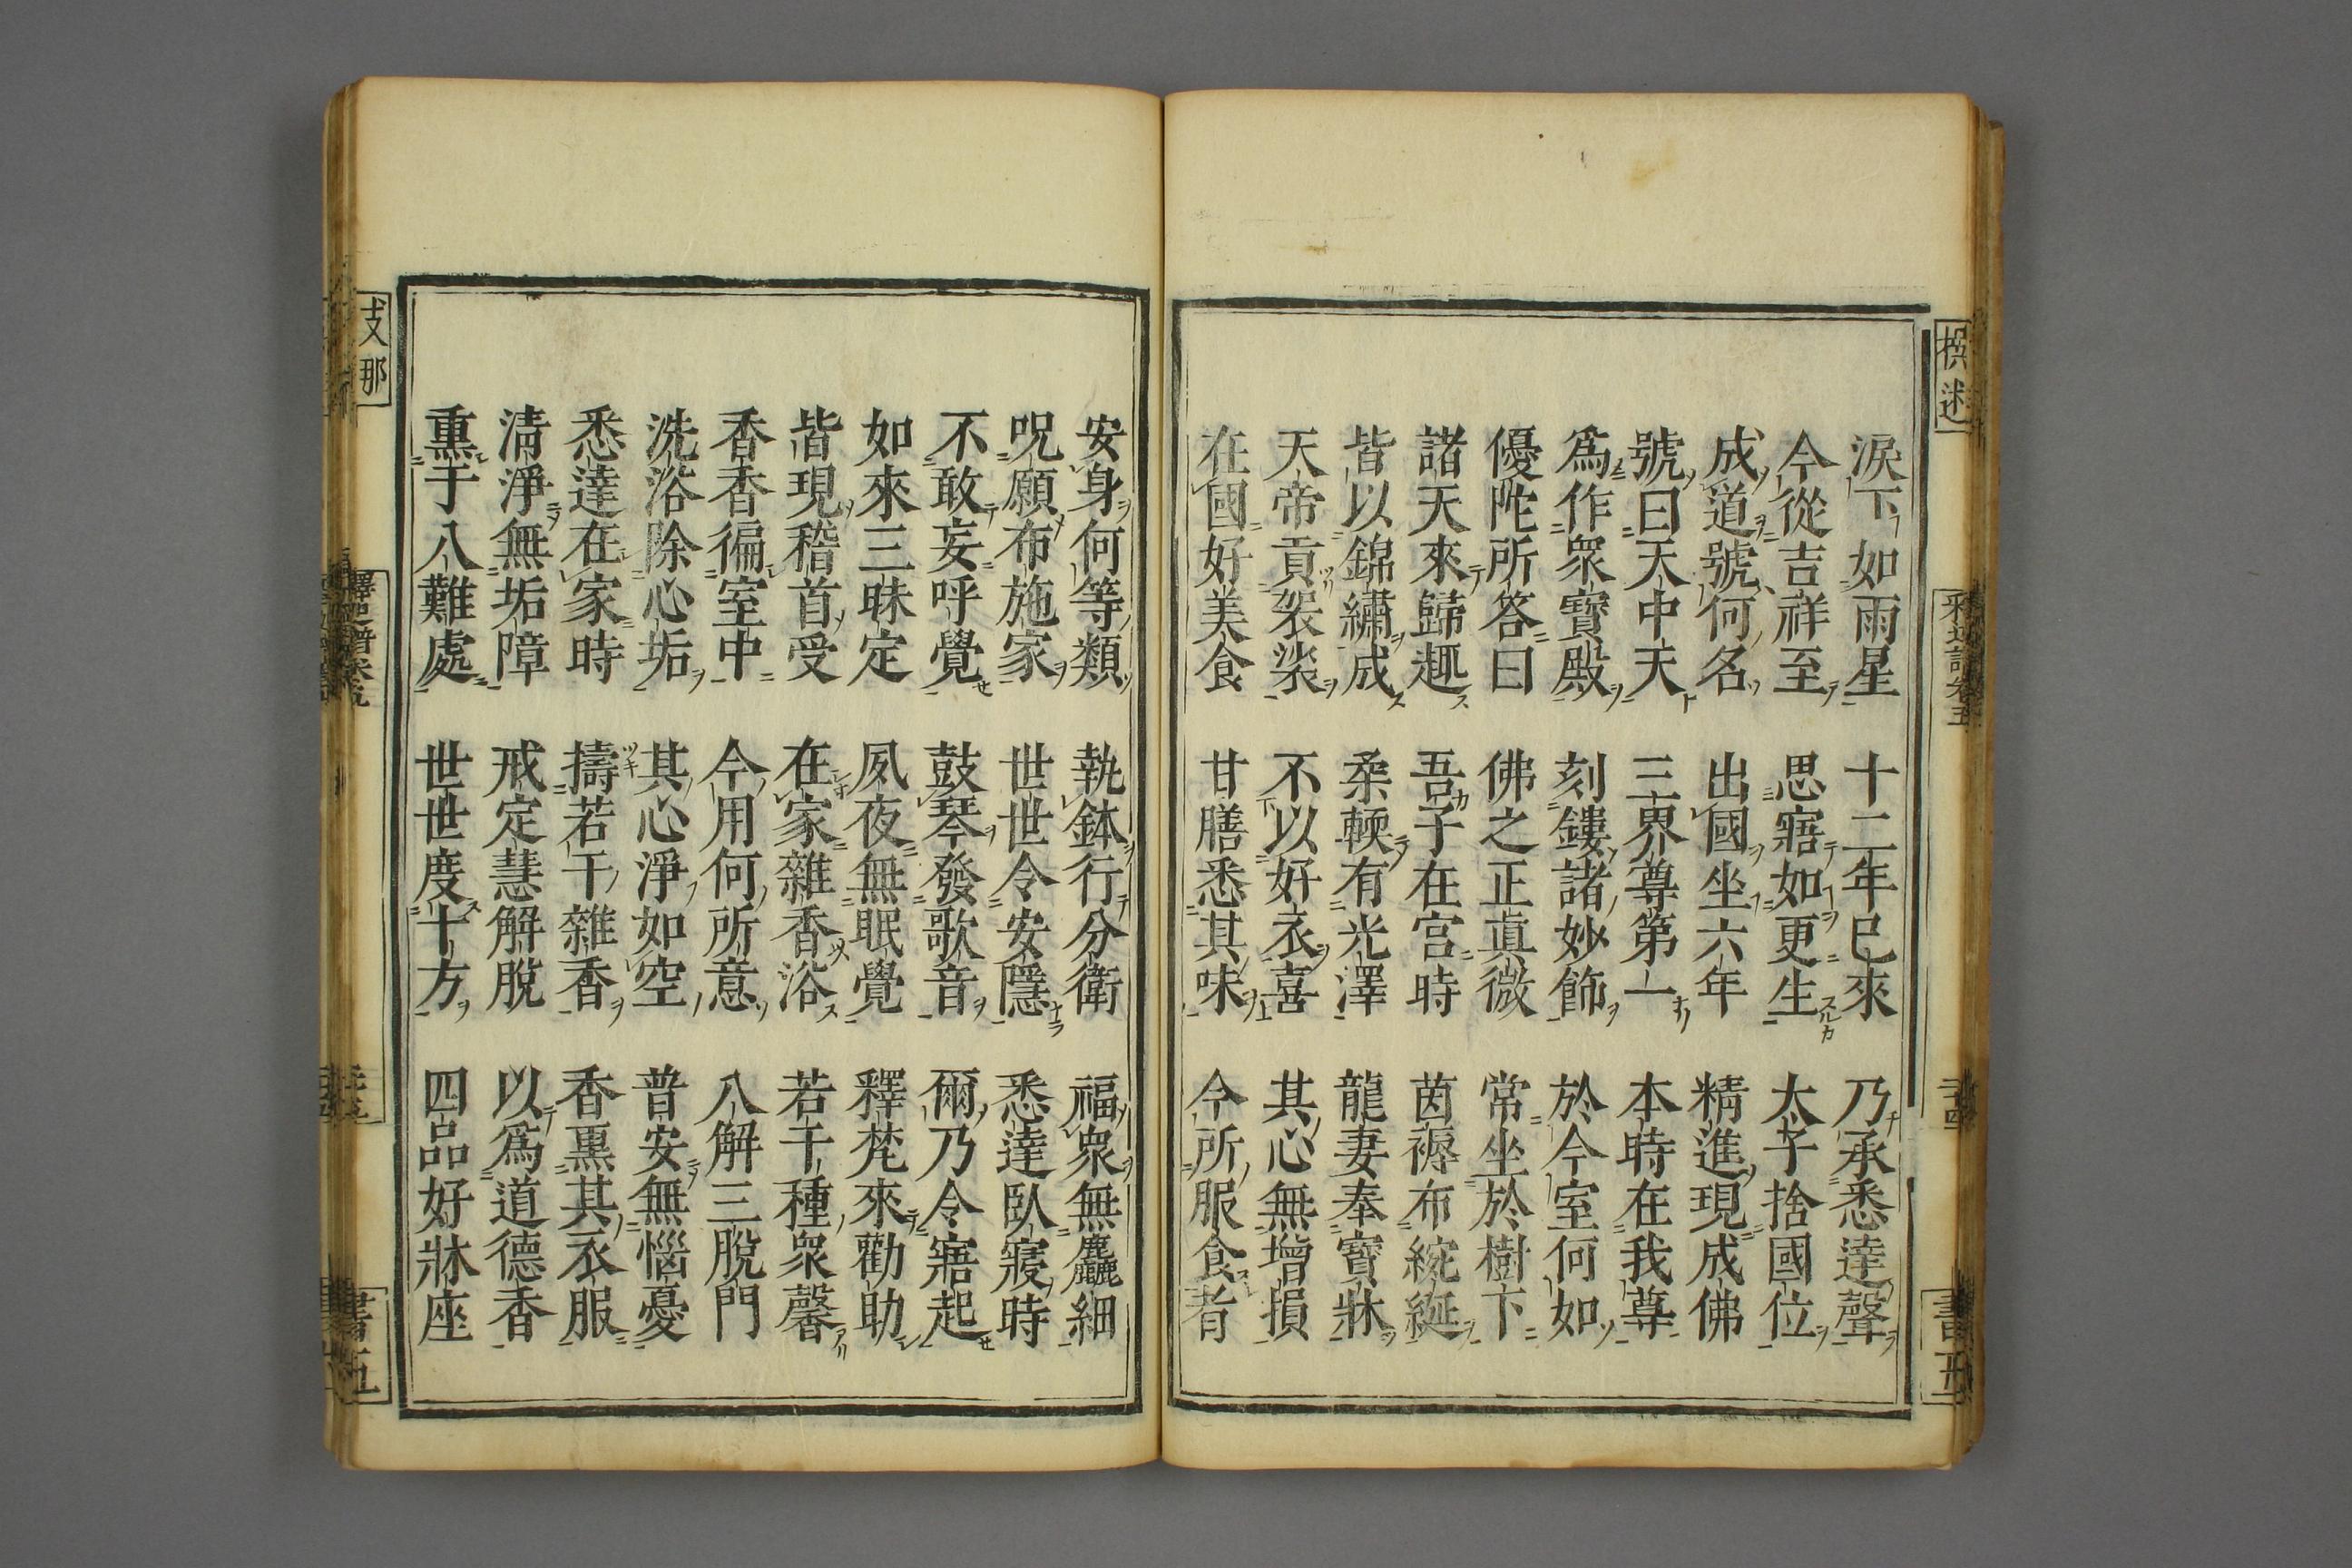 撰述
釋迦譜卷五
三十四
書五
淚下如雨星 十二年已來 乃承悉達聲
今從吉祥至 思寤如更生 太子捨國位
成道號何名 出國坐六年 精進現成佛
號曰天中天 三界尊第一 本時在我尊
爲作衆寶殿 刻鏤諸妙飾 於今室何如
優陀所答曰 佛之正眞微 常坐於樹下
諸天來歸趣 吾子在宮時 茵褥布綩綖
皆以錦繡成 柔輭有光澤 龍妻奉寶牀
天帝貢袈裟 不以好衣喜 其心無增損
在國好美食 甘膳悉其味 今所服食者
安身何等類 執鉢行分衛 福衆無麤細
呪願布施家 世世令安隱 悉達臥寢時
不敢妄呼覺 鼓琴發歌音 爾乃令寤起
如來三昧定 夙夜無眠覺 釋梵來勸助
皆現稽首受 在家雜香浴 若干種衆馨
香香徧室中 今用何所意 八解三脫門
洗浴除心垢 其心淨如空 普安無惱憂
悉達在家時 擣若干雜香 香熏其衣服
清淨無垢障 戒定慧解脫 以爲道德香
熏于八難處 世世度十方 四品好牀座
支那
釋迦譜卷五
書五